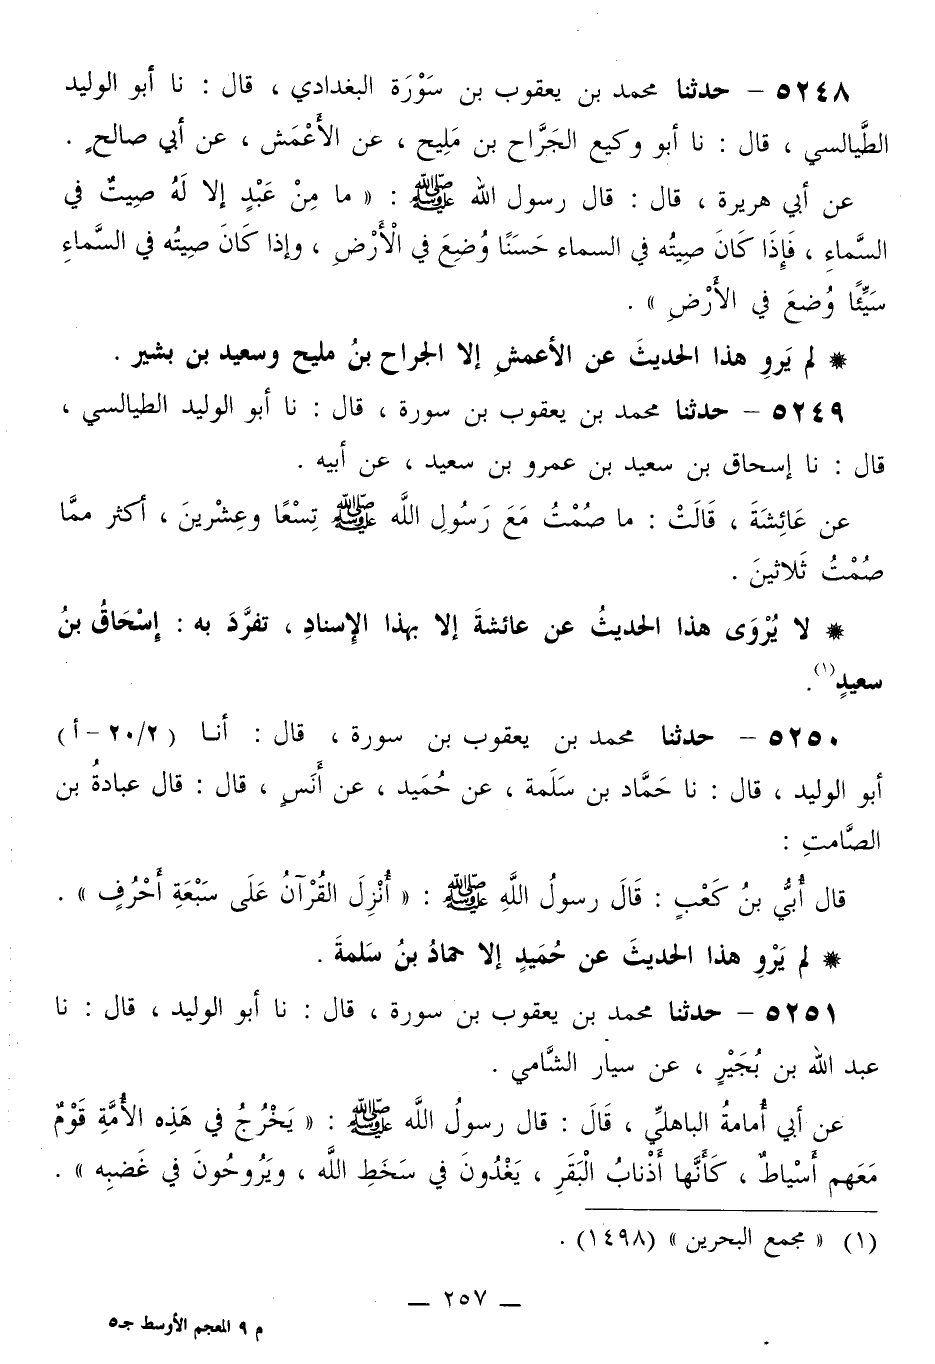 ٥٢٤٨ – حدثنا محمد بن يعقوب بن سَوْرَة البغدادي ، قال : نا أبو الوليد
الطَّيالسي ، قال : نا أبو وكيع الجَرَّاح بن مَلِيح ، عن الأَعْمَش ، عن أبي صالحٍ .
عن أبي هريرة ، قال : قال رسول الله ﷺ : « ما مِنْ عَبْدٍ إلا لَهُ صِيتٌ في
السَّماءِ ، فَإِذَا كَانَ صِيتُه في السماء حَسَنًا وُضِعَ في الْأَرْضِ ، وإذا كَانَ صِيتُه في السَّماءِ
سَيِّئًا وُضعَ في الأَرْضِ » .
✵ لم يَروِ هذا الحديثَ عن الأعمشِ إلا الجراح بنُ مليح وسعيد بن بشير .
٥٢٤٩ – حدثنا محمد بن يعقوب بن سورة ، قال : نا أبو الوليد الطيالسي ،
قال : نا إسحاق بن سعيد بن عمرو بن سعيد ، عن أبيه .
عن عَائِشةَ ، قَالَتْ : ما صُمْتُ مَعَ رَسُولِ اللَّه ﷺ تِسْعًا وعِشْرينَ ، أكثر ممَّا
صُمْتُ ثَلاثينَ .
✵ لا يُرْوَى هذا الحديثُ عن عائشةَ إلا بهذا الإسنادِ ، تفرَّدَ به : إِسْحَاقُ بنُ
سعيدٍ(١).
٥٢٥٠ – حدثنا محمد بن يعقوب بن سورة ، قال : أنا (٢٠/٢ – أ)
أبو الوليد ، قال : نا حَمَّاد بن سَلَمة ، عن حُمَيد ، عن أَنَسٍ ، قال : قال عبادةُ بن
الصَّامتِ :
قال أُبَيُّ بنُ كَعْبٍ : قَالَ رسولُ اللَّهِ ﷺ : « أُنْزِلَ القُرْآنُ عَلَى سَبْعَةِ أَحْرُفٍ » .
✵ لم يَرْوِ هذا الحديثَ عن حُمَيدٍ إلا حمادُ بنُ سَلمةَ .
٥٢٥١ – حدثنا محمد بن يعقوب بن سورة ، قال : نا أبو الوليد ، قال : نا
عبد الله بن بُجَيْرٍ ، عن سيار الشَّامي .
عن أبي أُمامةُ الباهليِّ ، قَالَ : قال رسولُ اللَّه ﷺ : « يَخْرُجُ في هَذِه الأُمَّةِ قَوْمٌ
مَعَهم أَسْياطٌ ، كَأَنَّها أَذْنابُ الْبَقَرِ ، يَغْدُونَ في سَخَطِ اللَّه ، ويَرُوحُونَ في غَضبِه » .
(١) « مجمع البحرين » (١٤٩٨) .
— ٢٥٧ —
م ٩ المعجم الأوسط جـ٥